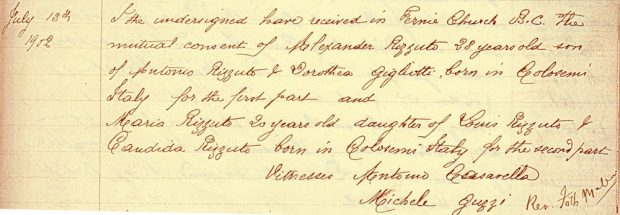 July 13th
1902
I the undersigned have received in Fernie Church B.C. the
mutual consent of Alexander Rizzuto 28 years old son
of Antonio Rizzuto & Dorothea Gigliotti born in Colosemi
Italy for the first part and
Maria Rizzuto 20 years old daughter of Louis Rizzuto &
Candida Rizzuto born in Colosemi Italy for the second part
Witnesses Antonio Casarella
Michele Guzzi Rev. Fath